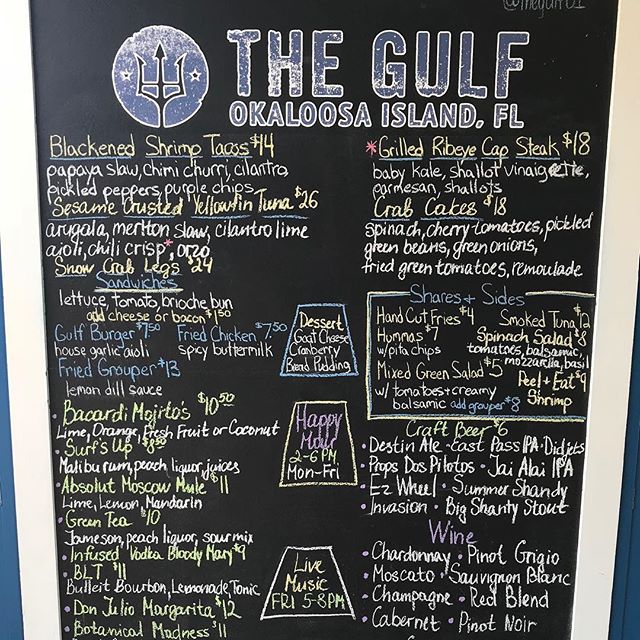 @thegulf01
THE GULF
OKALOOSA ISLAND, FL
Blackened Shrimp Tacos $14
papaya slaw, chimi churri, cilantro,
pickled peppers, purple chips
Sesame Crusted Yellowfin Tuna $26
arugala, merliton slaw, cilantro lime
aioli, chili crisp*, orzo
Snow Crab Legs $24
Sandwiches
lettuce, tomato, brioche bun
add cheese or bacon $1.50
Gulf Burger $7.50
house garlic aioli
Fried Chicken $7.50
spicy buttermilk
Fried Grouper $13
lemon dill sauce
*Grilled Ribeye Cap Steak $18
baby kale, shallot vinaigrette,
parmesan, shallots
Crab Cakes $18
spinach, cherry tomatoes, pickled
green beans, green onions,
fried green tomatoes, remoulade
Dessert
Goat Cheese
Cranberry
Bread Pudding
Shares + Sides
Hand Cut Fries $4
Hummas $7
w/pita chips
Mixed Green Salad $5
w/ tomatoes + creamy
balsamic add grouper $8
Smoked Tuna $12
Spinach Salad $8
tomatoes, balsamic,
mozzarella, basil
Peel + Eat $9
Shrimp
• Bacardi Mojito's $10.50
Lime, Orange, Fresh Fruit or Coconut
• Surf's Up $8.50
Malibu rum, peach liquor, juices
• Absolut Moscow Mule $11
Lime, Lemon, Mandarin
• Green Tea $10
Jameson, peach liquor, sour mix
• Infused Vodka Bloody Mary $9
• BLT $11
Bulleit Bourbon, Lemonade, Tonic
• Don Julio Margarita $12
• Botanical Madness $11
Happy
Hour
2-6 PM
Mon-Fri
Live
Music
FRI 5-8PM
Craft Beer $6
• Destin Ale • East Pass IPA • Didjets
• Props Dos Pilotos • Jai Alai IPA
• Ez Wheel • Summer Shandy
• Invasion • Big Shanty Stout
Wine
• Chardonnay • Pinot Grigio
• Moscato • Sauvignon Blanc
• Champagne • Red Blend
• Cabernet • Pinot Noir